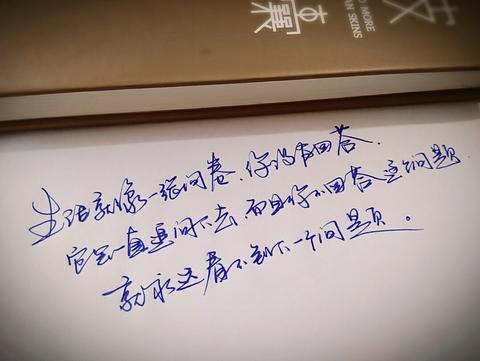 MORE
SKINS
生活就像一张问卷，你没有回答，
它会一直追问下去，而且你不回答这个问题，
就永远看不到下一个问题。